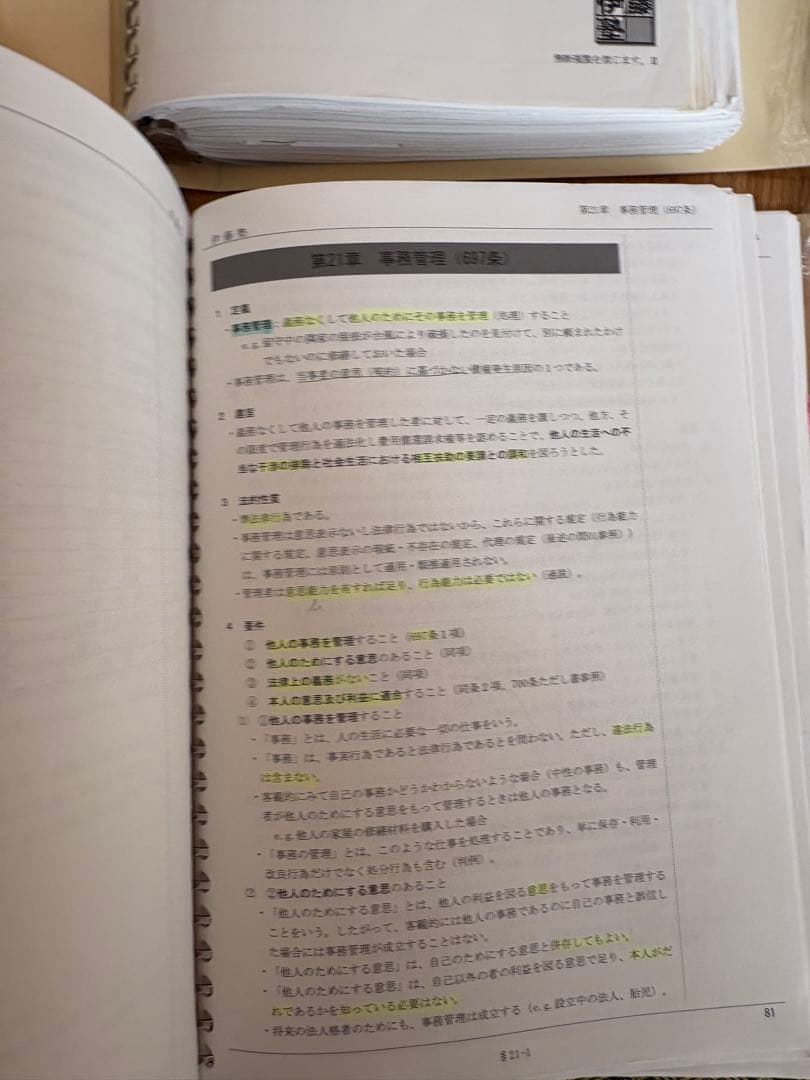 伊藤塾
無断複製を禁じます。Ⅱ
第21章 事務管理（697条）
伊藤塾
第21章 事務管理（697条）
1 定義
・事務管理：義務なくして他人のためにその事務を管理（処理）すること
e.g. 留守中の隣家の屋根が台風により破損したのを見付けて、別に頼まれたわけ
でもないのに修繕しておいた場合
・事務管理は、当事者の意思（契約）に基づかない債権発生原因の1つである。
2 趣旨
・義務なくして他人の事務を管理した者に対して、一定の義務を課しつつ、他方、そ
の限度で管理行為を適法化し費用償還請求権等を認めることで、他人の生活への不
当な干渉の排除と社会生活における相互扶助の要請との調和を図ろうとした。
3 法的性質
・準法律行為である。
・事務管理は意思表示ないし法律行為ではないから、これらに関する規定（行為能力
に関する規定、意思表示の瑕疵・不存在の規定、代理の規定（後述の間山参照））
は、事務管理には原則として適用・類推適用されない。
・管理者は意思能力を有すれば足り、行為能力は必要ではない（通説）。
4 要件
① 他人の事務を管理すること（697条1項）
② 他人のためにする意思のあること（同項）
③ 法律上の義務がないこと（同項）
④ 本人の意思及び利益に適合すること（同条2項、700条ただし書参照）
⑴ ①他人の事務を管理すること
・「事務」とは、人の生活に必要な一切の仕事をいう。
・「事務」は、事実行為であると法律行為であるとを問わない。ただし、違法行為
は含まない。
・客観的にみて自己の事務かどうかわからないような場合（中性の事務）も、管理
者が他人のためにする意思をもって管理するときは他人の事務となる。
e.g. 他人の家屋の修繕材料を購入した場合
・「事務の管理」とは、このような仕事を処理することであり、単に保存・利用・
改良行為だけでなく処分行為も含む（判例）。
⑵ ②他人のためにする意思のあること
・「他人のためにする意思」とは、他人の利益を図る意思をもって事務を管理する
ことをいう。したがって、客観的には他人の事務であるのに自己の事務と誤信し
た場合には事務管理が成立することはない。
・「他人のためにする意思」は、自己のためにする意思と併存してもよい。
・「他人のためにする意思」は、自己以外の者の利益を図る意思で足り、本人がだ
れであるかを知っている必要はない。
・将来の法人格者のためにも、事務管理は成立する（e.g. 設立中の法人、胎児）。
81
§21-1